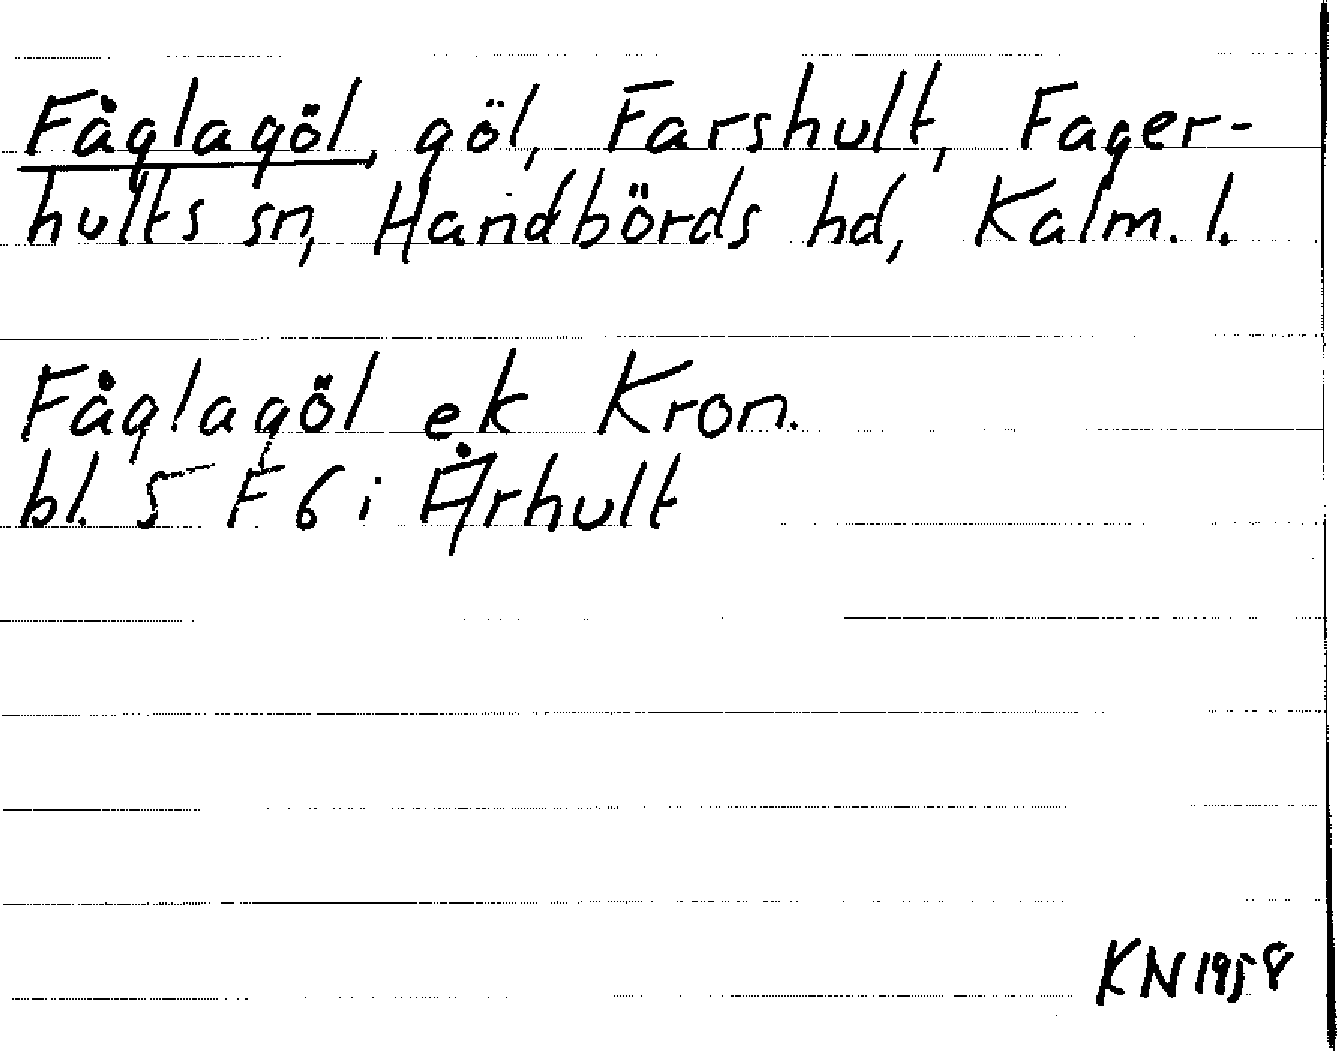 Fåglagöl, göl, Farshult, Fager-
hults sn, Handbörds hd, Kalm. l.
Fåglagöl ek Kron.
bl. 5 F 6 i Århult
KN 1958